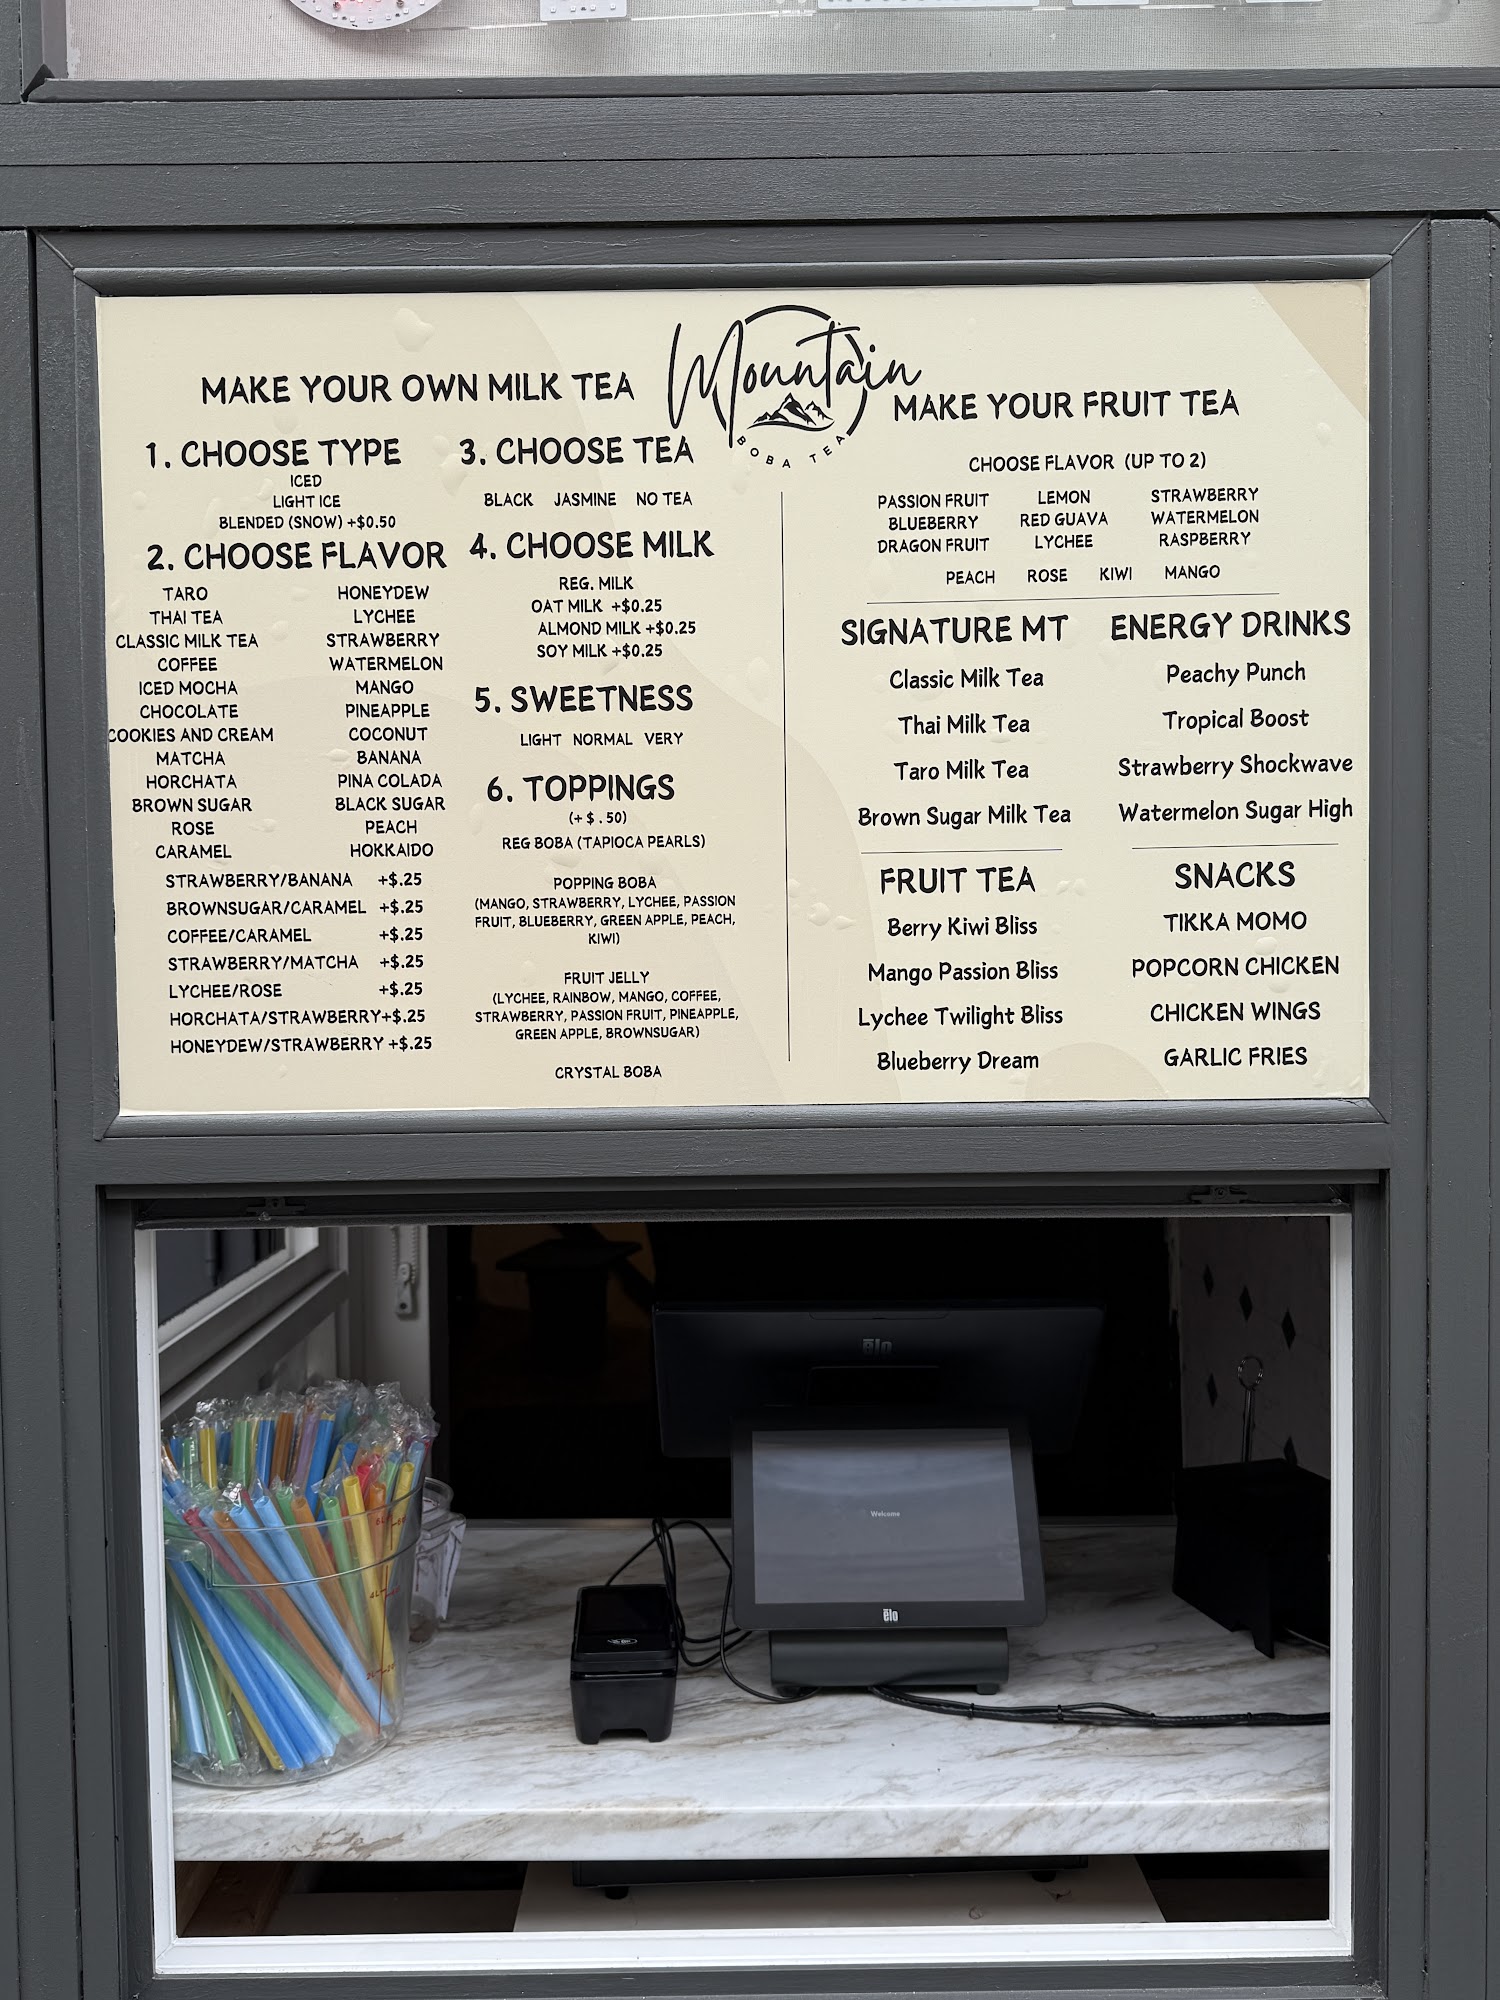 Mountain
BOBA TEA
MAKE YOUR OWN MILK TEA
1. CHOOSE TYPE
ICED
LIGHT ICE
BLENDED (SNOW) +$0.50
2. CHOOSE FLAVOR
TARO
THAI TEA
CLASSIC MILK TEA
COFFEE
ICED MOCHA
CHOCOLATE
COOKIES AND CREAM
MATCHA
HORCHATA
BROWN SUGAR
ROSE
CARAMEL
HONEYDEW
LYCHEE
STRAWBERRY
WATERMELON
MANGO
PINEAPPLE
COCONUT
BANANA
PINA COLADA
BLACK SUGAR
PEACH
HOKKAIDO
STRAWBERRY/BANANA +$.25
BROWNSUGAR/CARAMEL +$.25
COFFEE/CARAMEL +$.25
STRAWBERRY/MATCHA +$.25
LYCHEE/ROSE +$.25
HORCHATA/STRAWBERRY+$.25
HONEYDEW/STRAWBERRY +$.25
3. CHOOSE TEA
BLACK JASMINE NO TEA
4. CHOOSE MILK
REG. MILK
OAT MILK +$0.25
ALMOND MILK +$0.25
SOY MILK +$0.25
5. SWEETNESS
LIGHT NORMAL VERY
6. TOPPINGS
(+ $ . 50)
REG BOBA (TAPIOCA PEARLS)
POPPING BOBA
(MANGO, STRAWBERRY, LYCHEE, PASSION
FRUIT, BLUEBERRY, GREEN APPLE, PEACH,
KIWI)
FRUIT JELLY
(LYCHEE, RAINBOW, MANGO, COFFEE,
STRAWBERRY, PASSION FRUIT, PINEAPPLE,
GREEN APPLE, BROWNSUGAR)
CRYSTAL BOBA
MAKE YOUR FRUIT TEA
CHOOSE FLAVOR (UP TO 2)
PASSION FRUIT LEMON STRAWBERRY
BLUEBERRY RED GUAVA WATERMELON
DRAGON FRUIT LYCHEE RASPBERRY
PEACH ROSE KIWI MANGO
SIGNATURE MT
Classic Milk Tea
Thai Milk Tea
Taro Milk Tea
Brown Sugar Milk Tea
ENERGY DRINKS
Peachy Punch
Tropical Boost
Strawberry Shockwave
Watermelon Sugar High
FRUIT TEA
Berry Kiwi Bliss
Mango Passion Bliss
Lychee Twilight Bliss
Blueberry Dream
SNACKS
TIKKA MOMO
POPCORN CHICKEN
CHICKEN WINGS
GARLIC FRIES
elo
Welcome
elo